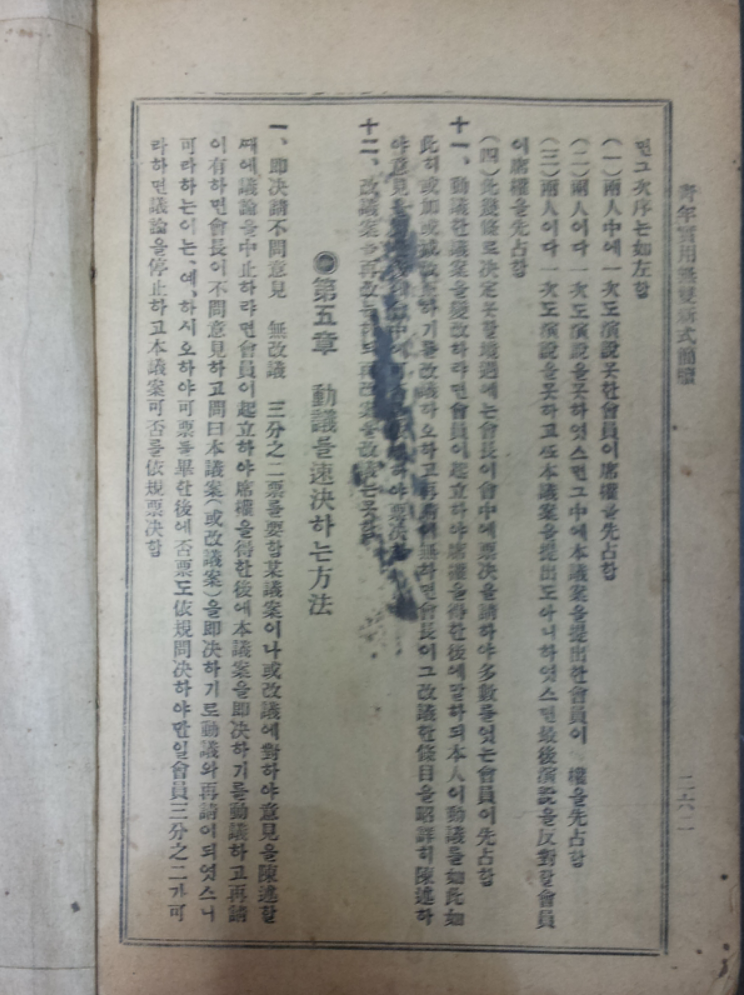 靑年實用無雙新式簡牘
二六二
면그次序는如左함
(一)兩人中에一次도演說못한會員이席權을先占함
(二)兩人이다一次도演說을못하엿스면그中에本議案을提出한會員이 權을先占함
(三)兩人이다一次도演說을못하고또本議案을提出도아니하엿스면最後演說을反對할會員
이席權을先占함
(四)此雙條로決定못할境遇에는會長이會中에票決을請하야多數를엇는會員이先占함
十一、動議한議案을變改하랴면會員이起立하야席權을得한後에말하되本人이動議를如此如
此히或加或減改 하기를改議하오하고再 이無하면會長이그改議한條目을昭詳히陳述하
야意見을 中에 하야票決
十二、改議案을再改는 되再改案을改議는못함
◉第五章 動議를速決하는方法
一、卽決請不問意見 無改議 三分之二票를要함某議案이나或改議에對하야意見을陳述할
때에議論을中止하랴면會員이起立하야席權을得한後에本議案을卽決하기를動議하고再請
이有하면會長이不問意見하고問曰本議案(或改議案)을卽決하기로動議와再請이되엿스니
可라하는이는、예、하시오하야可票를畢한後에否票도依規問決하야만일會員三分之二가可
라하면議論을停止하고本議案可否를依規票決함